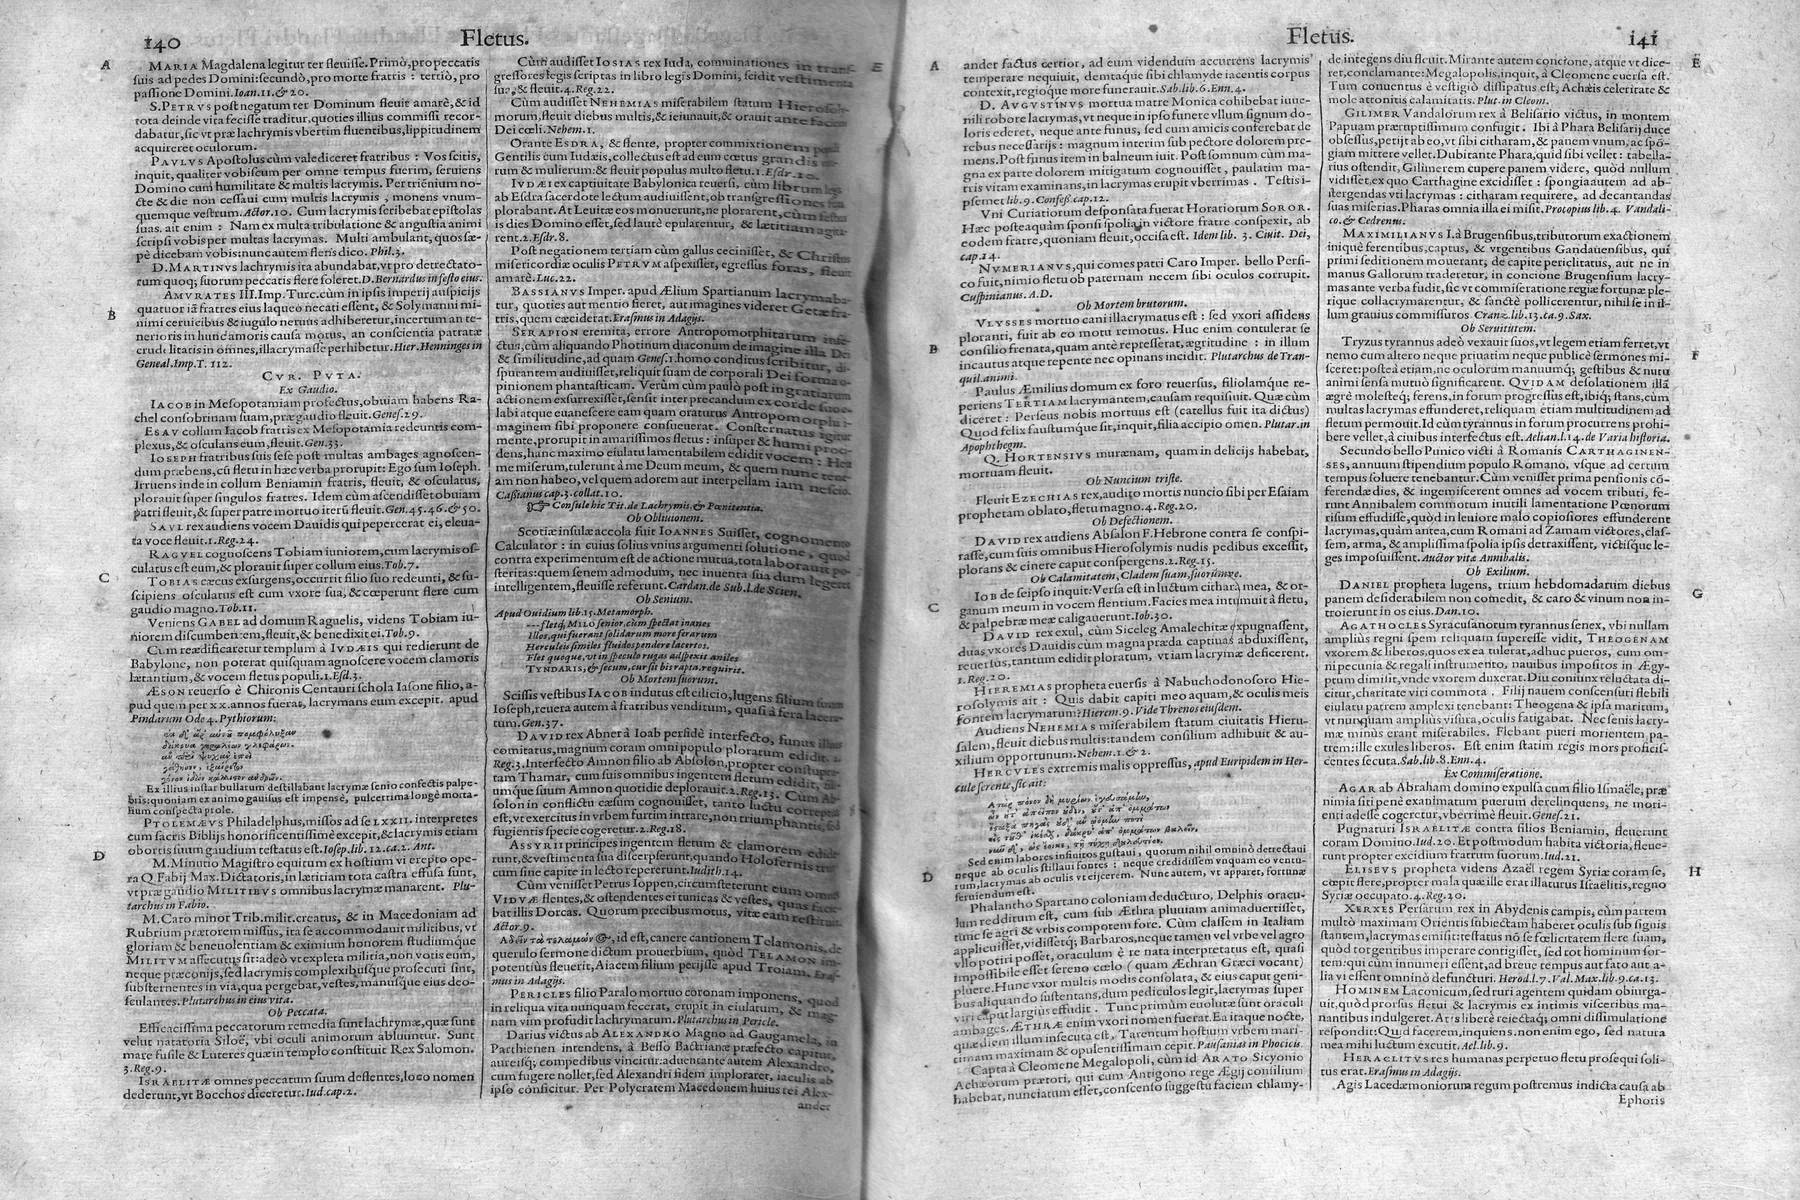 140
Fletus.
A
MARIA Magdalena legitur ter fleuisse. Primò, pro peccatis
suis ad pedes Domini: secundò, pro morte fratris : tertiò, pro
passione Domini. Ioan. 11. & 20.
S. PETRVS post negatum ter Dominum fleuit amarè, & id
tota deinde vita fecisse traditur. quoties illius commissi recor-
dabatur, sic vt præ lachrymis vbertim fluentibus, lippitudinem
acquireret oculorum.
PAVLVS Apostolus cùm valediceret fratribus : Vos scitis,
inquit, qualiter vobiscum per omne tempus fuerim, seruiens
Domino cum humilitate & multis lacrymis. Per triēnium no-
cte & die non cessaui cum multis lacrymis , monens vnum-
quemque vestrum. Actor. 10. Cum lacrymis scribebat epistolas
suas. ait enim : Nam ex multa tribulatione & angustia animi
scripsi vobis per multas lacrymas. Multi ambulant, quos sæ-
pè dicebam vobis: nunc autem flens dico. Phil. 3.
D. MARTINVS lachrymis ita abundabat, vt pro detrectato-
rum quoq; suorum peccatis flere soleret. D. Bernardus in festo eius.
B
AMVRATES III. Imp. Turc. cùm in ipsis imperij auspicijs
quatuor iā fratres eius laqueo necati essent, & Solymanni mi-
nimi ceruicibus & iugulo neruus adhiberetur, incertum an te-
nerioris in hunc amoris causa motus, an conscientia patratæ
crudelitatis in omnes, illacrymasse perhibetur. Hier. Henninges in
Geneal. Imp. T. 112.
CVR. PVTA.
Ex Gaudio.
IACOB in Mesopotamiam profectus, obuiam habens Ra-
chel consobrinam suam, præ gaudio fleuit. Genes. 29.
ESAV collum Iacob fratris ex Mesopotamia redeuntis com-
plexus, & osculans eum, fleuit. Gen. 33.
IOSEPH fratribus suis sese post multas ambages agnoscen-
dum præbens, cū fletu in hæc verba prorupit: Ego sum Ioseph.
Irruens inde in collum Beniamin fratris, fleuit, & osculatus,
plorauit super singulos fratres. Idem cùm ascendisset obuiam
patri fleuit, & super patre mortuo iterū fleuit. Gen. 45. 46. & 50.
SAVL rex audiens vocem Dauidis qui pepercerat ei, eleua-
ta voce fleuit. 1. Reg. 24.
RAGVEL cognoscens Tobiam iuniorem, cum lacrymis os-
culatus est eum, & plorauit super collum eius. Tob. 7.
C
TOBIAS cæcus exsurgens, occurrit filio suo redeunti, & su-
scipiens osculatus est cum vxore sua, & cœperunt flere cum
gaudio magno. Tob. 11.
Veniens GABEL ad domum Raguelis, videns Tobiam iu-
niorem discumbentem, fleuit, & benedixit ei. Tob. 9.
Cum reædificaretur templum à IVDÆIS qui redierunt de
Babylone, non poterat quisquam agnoscere vocem clamoris
lætantium, & vocem fletus populi. 1. Esd. 3.
ÆSON reuerso è Chironis Centauri schola Iasone filio, a-
pud quem per xx. annos fuerat, lacrymans eum excepit. apud
Pindarum Ode 4. Pythiorum:
Ex illius instar bullatum destillabant lacrymæ senio confectis palpe-
bris: quoniam ex animo gauisus est impensè, pulcerrima longè morta-
lium conspecta prole.
PTOLEMÆVS Philadelphus, missos ad se LXXII. interpretes
cum sacris Biblijs honorificentissimè excepit, & lacrymis etiam
obortis suum gaudium testatus est. Iosep. lib. 12. ca. 2. Ant.
D
M. Minutio Magistro equitum ex hostium vi erepto ope-
ra Q. Fabij Max. Dictatoris, in lætitiam tota castra effusa sunt,
vt præ gaudio MILITIBVS omnibus lacrymæ manarent. Plu-
tarchus in Fabio.
M. Cato minor Trib. milit. creatus, & in Macedoniam ad
Rubrium prætorem missus, ita se accommodauit militibus, vt
gloriam & beneuolentiam & eximium honorem studiumque
MILITVM assecutus sit: adeò vt expleta militia, non votis eum,
neque præconijs, sed lacrymis complexibusque prosecuti sint,
substernentes in via, qua pergebat, vestes, manusque eius deo-
sculantes. Plutarchus in eius vita.
Ob Peccata.
Efficacissima peccatorum remedia sunt lachrymæ, quæ sunt
velut natatoria Siloë, vbi oculi animorum abluuntur. Sunt
mare fusile & Luteres quæ in templo constituit Rex Salomon.
3. Reg. 9.
ISRAELITÆ omnes peccatum suum deflentes, loco nomen
dederunt, vt Bocchos diceretur. Iud. cap. 2.
Cùm audisset IOSIAS rex Iuda, comminationes in trans-
gressores legis scriptas in libro legis Domini, scidit vestimenta
sua, & fleuit. 4. Reg. 22.
Cùm audisset NEHEMIAS miserabilem statum Hierosol-
morum, fleuit diebus multis, & ieiunauit, & orauit ante faciem
Dei cœli. Nehem. 1.
Orante ESDRA, & flente, propter commixtionem
Gentilium cum Iudæis, collectus est ad eum cœtus grandis vi-
rum & mulierum: & fleuit populus multo fletu. 1. Esdr. 10.
IVDÆI ex captiuitate Babylonica reuersi, cùm librum legis
ab Esdra sacerdote lectum audiuissent, ob transgressiones suas
plorabant. At Leuitæ eos monuerunt, ne plorarent, cùm festus
is dies Domino esset, sed lautè epularentur, & lætitiam age-
rent. 2. Esdr. 8.
Post negationem tertiam cùm gallus cecinisset, & Christus
misericordiæ oculis PETRVM aspexisset, egressus foras, fleuit
amarè. Luc. 22.
BASSIANVS Imper. apud Ælium Spartianum lacrymaba-
tur, quoties aut mentio fieret, aut imagines videret Getæ fra-
tris, quem ceciderat. Erasmus in Adagijs.
SERAPION eremita, errore Antropomorphitarum infe-
ctus, cùm aliquando Photinum diaconum de imagine illa Dei
& similitudine, ad quam Genes. 1. homo conditus scribitur, di-
spurantem audiuisset, reliquit suam de corporali Dei forma o-
pinionem phantasticam. Verùm cùm paulò post in gratiarum
actionem exsurrexisset, sensit inter precandum ex corde suo e-
labi atque euanescere eam quam oraturus Antropomorphi-
maginem sibi proponere consueuerat. Consternatus igitur
mente, prorupit in amarissimos fletus : insuper & humi proci-
dens, hanc maximo eiulatu lamentabilem edidit vocem : Heu
me miserum, tulerunt à me Deum meum, & quem nunc tene-
am non habeo, vel quem adorem aut interpellam iam nescio.
Cassianus cap. 3. collat. 10.
☞ Consule hic Tit. de Lachrymis, & Pœnitentia.
Ob Obliuionem.
Scotiæ insulæ accola fuit IOANNES Suisset, cognomento
Calculator : in cuius solius vnius argumenti solutione , quod
contra experimentum est de actione mutua, tota laborauit po-
steritas: quem senem admodum, nec inuenta sua dum legeret
intelligentem, fleuisse referunt. Cardan. de Sub. l. de Scien.
Ob Senium.
Apud Ouidium lib. 15. Metamorph.
---fletq; MILO senior, cùm spectat inanes
Illos, qui fuerant solidarum more ferarum
Herculeis similes fluidos pendere lacertos.
Flet quoque, vt in speculo rugas adspexit aniles
TYNDARIS, & secum, cur sit bis rapta, requirit.
Ob Mortem suorum.
Scissis vestibus IACOB indutus est cilicio, lugens filium suum
Ioseph, reuera autem à fratribus venditum, quasi à fera lacera-
tum. Gen. 37.
DAVID rex Abner à Ioab perfidè interfecto, funus illius
comitatus, magnum coram omni populo ploratum edidit. 2.
Reg. 3. Interfecto Amnon filio ab Absolon, propter constupra-
tam Thamar, cum suis omnibus ingentem fletum edidit,
umque suum Amnon quotidie deplorauit. 2. Reg. 13. Cum Ab-
solon in conflictu cæsum cognouisset, tanto luctu correptus
est, vt exercitus in vrbem furtim intrare, non triumphantis, sed
fugientis specie cogeretur. 2. Reg. 18.
ASSYRII principes ingentem fletum & clamorem edide-
runt, & vestimenta sua discerpserunt, quando Holofernis trun-
cum sine capite in lecto repererunt. Iudith. 14.
Cùm venisset Petrus Ioppen, circumsteterunt eum omnes
VIDVÆ flentes, & ostendentes ei tunicas & vestes, quas facie-
bat illis Dorcas. Quorum precibus motus, vitæ eam restituit.
Actor. 9.
id est, canere cantionem Telamonis, de
querulo sermone dictum prouerbium, quòd TELAMON im-
potentiùs fleuerit, Aiacem filium perijsse apud Troiam. Eras-
mus in Adagijs.
PERICLES filio Paralo mortuo coronam imponens, quod
in reliqua vita nunquam fecerat, erupit in eiulatum, & mag-
nam vim profudit lachrymarum. Plutarchus in Pericle.
Darius victus ab ALEXANDRO Magno ad Gaugamela, in
Parthienen intendens, à Besso Bactrianæ præfecto capitur,
aureisq; compedibus vincitur: aduentante autem Alexandro,
cum fugere nollet, sed Alexandri fidem imploraret, iaculis ab
ipso conficitur. Per Polycratem Macedonem huius rei Alex-
ander
E
Fletus.
141
A
ander factus certior, ad eum videndum accurrens lacrymis
temperare nequiuit, demtaque sibi chlamyde iacentis corpus
contexit, regioque more funerauit. Sab. lib. 6. Enn. 4.
D. AVGVSTINVS mortua matre Monica cohibebat iuue-
nili robore lacrymas, vt neque in ipso funere vllum signum do-
loris ederet, neque ante funus, sed cum amicis conferebat de
rebus necessarijs : magnum interim sub pectore dolorem pre-
mens. Post funus item in balneum iuit. Post somnum cùm ma-
gna ex parte dolorem mitigatum cognouisset, paulatim ma-
tris vitam examinans, in lacrymas erupit vberrimas . Testis i-
psemet lib. 9. Confess. cap. 12.
Vni Curiatiorum desponsata fuerat Horatiorum SOROR.
Hæc posteaquàm sponsi spolia, in victore fratre conspexit, ab
eodem fratre, quoniam fleuit, occisa est. Idem lib. 3. Ciuit. Dei,
cap. 14.
NVMERIANVS, qui comes patri Caro Imper. bello Persi-
co fuit, nimio fletu ob paternam necem sibi oculos corrupit.
Cuspinianus. A.D.
Ob Mortem brutorum.
B
VLYSSES mortuo cani illacrymatus est : sed vxori assidens
ploranti, fuit ab eo motu remotus. Huc enim contulerat se
consilio frenata, quam antè represserat, ægritudine : in illum
incautus atque repente nec opinans incidit. Plutarchus de Tran-
quil. animi.
Paulus Æmilius domum ex foro reuersus, filiolamque re-
periens TERTIAM lacrymantem, causam requisiuit. Quæ cùm
diceret : Perseus nobis mortuus est (catellus fuit ita dictus)
Quod felix faustumque sit, inquit, filia accipio omen. Plutar. in
Apophthegm.
Q. HORTENSIVS murænam, quam in delicijs habebat,
mortuam fleuit.
Ob Nuncium triste.
Fleuit EZECHIAS rex, audito mortis nuncio sibi per Esaiam
prophetam oblato, fletu magno. 4. Reg. 20.
Ob Defectionem.
DAVID rex audiens Absalon F. Hebrone contra se conspi-
rasse, cum suis omnibus Hierosolymis nudis pedibus excessit,
plorans & cinere caput conspergens. 2. Reg. 15.
Ob Calamitatem, Cladem suam, suorumve.
C
IOB de seipso inquit: Versa est in luctum cithara mea, & or-
ganum meum in vocem flentium. Facies mea intumuit à fletu,
& palpebræ meæ caligauerunt. Iob. 30.
DAVID rex exul, cùm Siceleg Amalechitæ expugnassent,
duas vxores Dauidis cum magna præda captiuas abduxissent,
reuersus, tantum edidit ploratum, vt iam lacrymæ deficerent.
1. Reg. 20.
HIEREMIAS propheta euersis à Nabuchodonosoro Hie-
rosolymis ait : Quis dabit capiti meo aquam, & oculis meis
fontem lacrymarum? Hierem. 9. Vide Threnos eiusdem.
Audiens NEHEMIAS miserabilem statum ciuitatis Hieru-
salem, fleuit diebus multis: tandem consilium adhibuit & au-
xilium opportunum. Nehem. 1. & 2.
HERCVLES extremis malis oppressus, apud Euripidem in Her-
cule ferente, sic ait:
D
Sed enim labores infinitos gustaui , quorum nihil omnino detrectaui
neque ab oculis stillaui fontes : neque credidissem vnquam eo ventu-
rum, lacrymas ab oculis vt eijcerem. Nunc autem, vt apparet, fortunæ
seruiendum est.
Phalantho Spartano coloniam deducturo, Delphis oracu-
lum redditum est, cum sub Æthra pluuiam animaduertisset,
tunc se agri & vrbis compotem fore. Cùm classem in Italiam
applicuisset, vidissetq; Barbaros, neque tamen vel vrbe vel agro
vllo potiri posset, oraculum è re nata interpretatus est, quasi
impossibile esset sereno cœlo (quam Æthran Græci vocant)
pluere. Hunc vxor multis modis consolata, & eius caput geni-
bus aliquando sustentans, dum pediculos legit, lacrymas super
viri caput largius effudit . Tunc primùm euolutæ sunt oraculi
ambages. ÆTHRÆ enim vxori nomen fuerat. Ea itaque nocte,
quæ diem illum insecuta est, Tarentum hostium vrbem mari-
timam maximam & opulentissimam cepit. Pausanias in Phocicis.
Capta à Cleomene Megalopoli, cùm id ARATO Sicyonio
Achæorum prætori, qui cum Antigono rege Ægij consilium
habebat, nunciatum esset, conscenso suggestu faciem chlamy-
de integens diu fleuit. Mirante autem concione, atque vt dice-
ret, conclamante: Megalopolis, inquit, à Cleomene euersa est.
Tum conuentus è vestigiò dissipatus est, Achæis celeritate &
mole attonitis calamitatis. Plut. in Cleom.
E
GILIMER Vandalorum rex à Belisario victus, in montem
Papuam præruptissimum confugit . Ibi à Phara Belisarij duce
obsessus, petijt ab eo, vt sibi citharam, & panem vnum, ac spō-
giam mittere vellet. Dubitante Phara, quid sibi vellet : tabella-
rius ostendit, Gilimerem cupere panem videre, quòd nullum
vidisset, ex quo Carthagine excidisset : spongia autem ad ab-
stergendas vti lacrymas : citharam requirere, ad decantandas
suas miserias. Pharas omnia illa ei misit. Procopius lib. 4. Vandali-
co. & Cedrenus.
MAXIMILIANVS I. à Brugensibus, tributorum exactionem
iniquè ferentibus, captus, & vrgentibus Gandauensibus, qui
primi seditionem mouerant, de capite periclitatus, aut ne in
manus Gallorum traderetur, in concione Brugensium lacry-
mas ante verba fudit, sic vt commiseratione regiæ fortunæ ple-
rique collacrymarentur, & sanctè pollicerentur, nihil se in il-
lum grauius commissuros. Cranz. lib. 13. ca. 9. Sax.
Ob Seruitutem.
F
Tryzus tyrannus adeò vexauit suos, vt legem etiam ferret, vt
nemo cum altero neque priuatim neque publicè sermones mi-
sceret: postea etiam, ne oculorum manuumq; gestibus & nutu
animi sensa mutuò significarent. QVIDAM desolationem illā
ægrè molesteq; ferens, in forum progressus est, ibiq; stans, cùm
multas lacrymas effunderet, reliquam etiam multitudinem ad
fletum permouit. Id cùm tyrannus in forum procurrens prohi-
bere vellet, à ciuibus interfectus est. Aelian. l. 14. de Varia historia.
Secundo bello Punico victi à Romanis CARTHAGINEN-
SES, annuum stipendium populo Romano, vsque ad certum
tempus soluere tenebantur. Cùm venisset prima pensionis cō-
ferendæ dies, & ingemiscerent omnes ad vocem tributi, fe-
runt Annibalem commotum inutili lamentatione Pœnorum
risum effudisse, quòd in leuiore malo copiosiores effunderent
lacrymas, quàm antea, cùm Romani ad Zamam victores, clas-
sem, arma, & amplissima spolia ipsis detraxissent, victisque le-
ges imposuissent. Auctor vitæ Annibalis.
Ob Exilium.
G
DANIEL propheta lugens, trium hebdomadarum diebus
panem desiderabilem non comedit, & caro & vinum non in-
troierunt in os eius. Dan. 10.
AGATHOCLES Syracusanorum tyrannus senex, vbi nullam
ampliùs regni spem reliquam superesse vidit, THEOGENAM
vxorem & liberos, quos ex ea tulerat, adhuc pueros, cum om-
ni pecunia & regali instrumento, nauibus impositos in Ægy-
ptum dimilit, vnde vxorem duxerat. Diu coniunx reluctata di-
citur, charitate viri commota . Filij nauem conscensuri flebili
eiulatu patrem amplexi tenebant: Theogena & ipsa maritum,
vt nunquam ampliùs visura, oculis fatigabat. Nec senis lacry-
mæ minùs erant miserabiles. Flebant pueri morientem pa-
trem: ille exules liberos. Est enim statim regis mors profici-
centes secuta. Sab. lib. 8. Enn. 4.
Ex Commiseratione.
AGAR ab Abraham domino expulsa cum filio Ismaële, præ
nimia siti penè exanimatum puerum derelinquens, ne mori-
enti adesse cogeretur, vberrimè fleuit. Genes. 21.
Pugnaturi ISRAELITÆ contra filios Beniamin, fleuerunt
coram Domino. Iud. 20. Et postmodum habita victoria, fleue-
runt propter excidium fratrum suorum. Iud. 21.
H
ELISEVS propheta videns Azaël regem Syriæ coram se,
cœpit flere, propter mala quæ ille erat illaturus Israëlitis, regno
Syriæ occupato. 4. Reg. 20.
XERXES Persarum rex in Abydenis campis, cùm partem
multò maximam Orientis subiectam haberet oculis sub signis
stantem, lacrymas emisit: testatus nō se fœlicitatem flere suam,
quòd tot gentibus imperare contigisset, sed tot hominum sor-
tem: qui cùm innumeri essent, ad breue tempus aut fato aut a-
lia vi essent omnino defuncturi. Herod. l. 7. Val. Max. lib. 9. ca. 13.
HOMINEM Laconicum, sed ruri agentem quidam obiurga-
uit, quòd prorsus fletui & lacrymis ex intimis visceribus ma-
nantibus indulgeret. At is liberè reiectaq; omni dissimulatione
respondit: Quid facerem, inquiens. non enim ego, sed natura
mea mihi luctum excutit. Ael. lib. 9.
HERACLITVS res humanas perpetuo fletu prosequi soli-
tus erat. Erasmus in Adagijs.
Agis Lacedæmoniorum regum postremus indicta causa ab
Ephoris